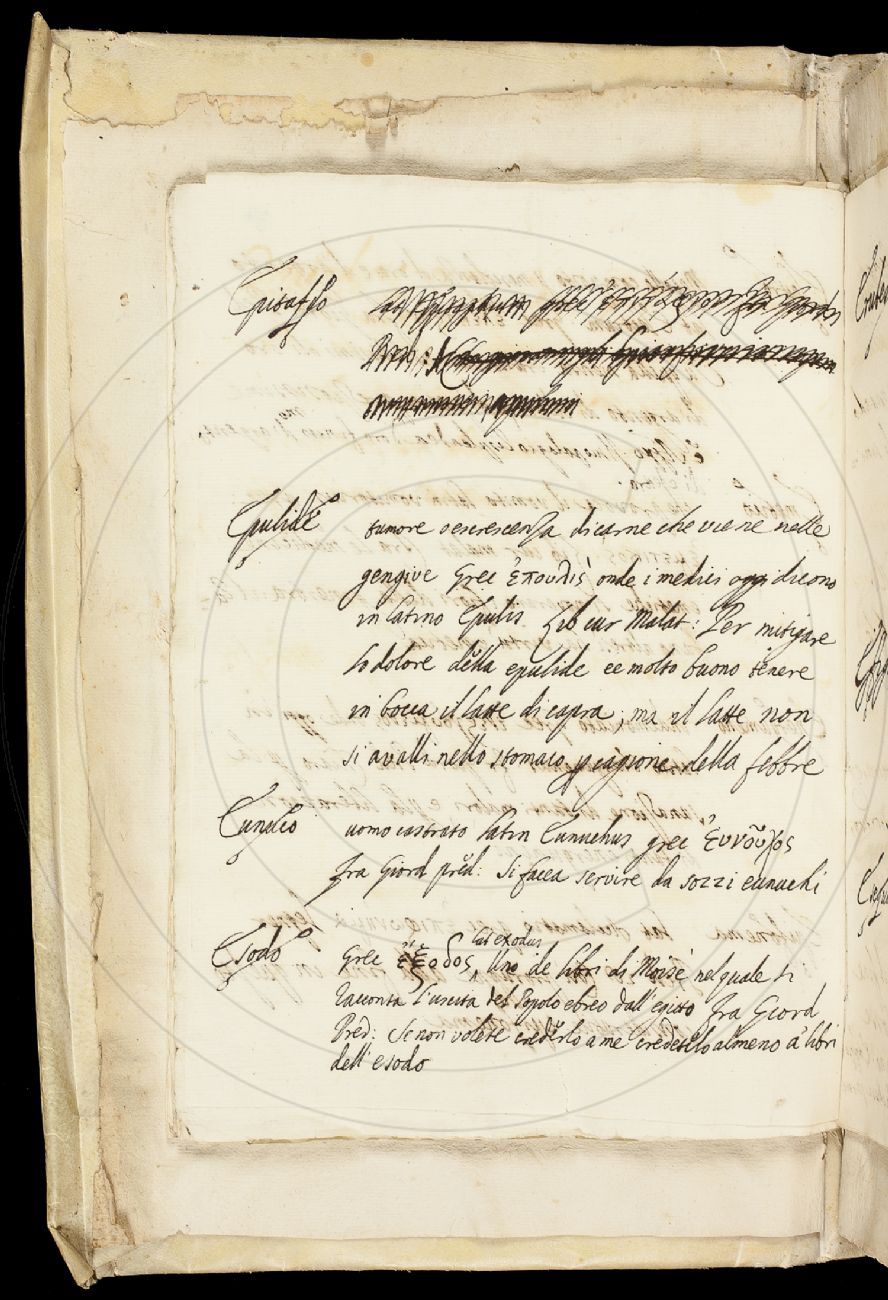 Epitaffio
Epulide tumore o escrescenza di carne che viene nelle
gengive Grec ἐπουλὶς onde i medici oggi dicono
in latino Epulis. Lib cur Malat: Per mitigare
lo dolore della epulide ee molto buono tenere
in bocca il latte di capra, ma il latte non
si avalli nello stomaco p cagione della febbre
Eunuco uomo castrato latin Eunuchus grec Ἐυνοῦχος
fra Giord pred: Si facea servire da sozzi eunuchi
Esodo Grec ἔξοδος, lat exodus Uno de libri di Moisè nel quale si
racconta l'uscita del Popolo ebreo dall'egitto fra Giord
Pred: Se non volete crederlo a me credetelo almeno a' libri
dell'esodo